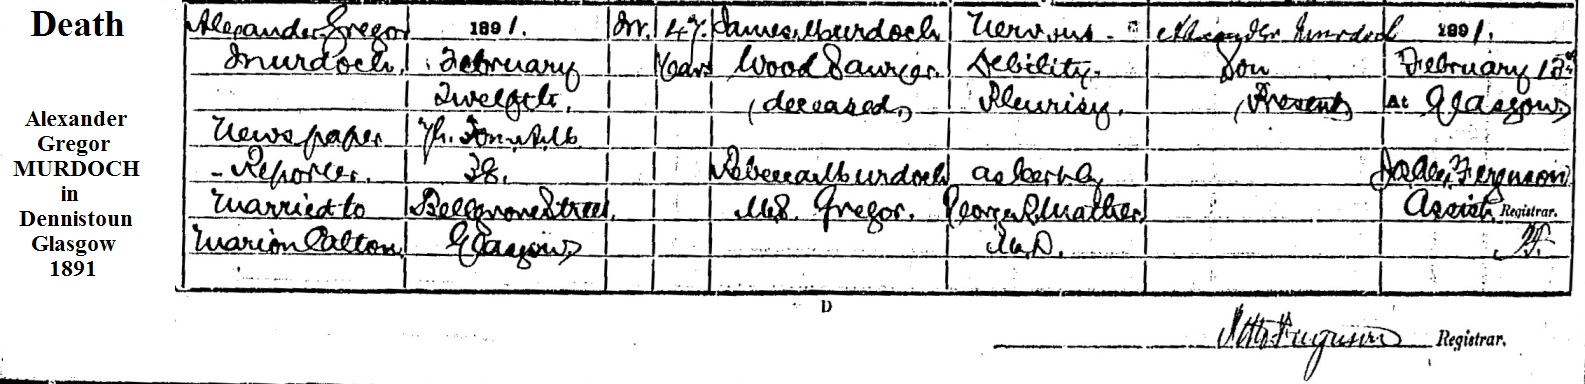 Death
Alexander
Gregor
MURDOCH
in
Dennistoun
Glasgow
1891
Alexander Gregor
Murdoch.
Newspaper
Reporter.
Married to
Marion Calton
1891.
February
Twelfth.
28.
Bellgrove Street
Glasgow
M.
47
Years
James Murdoch
Wood Sawyer.
(deceased)
Rebecca Murdoch
M.S. Gregor.
Nervous
Debility.
Pleurisy.
as cert by
George R. Mather
M.D.
Alexander Murdoch
Son
(Present)
1891.
February
At Glasgow
Ferguson
Assist Registrar.
D
Ferguson Registrar.